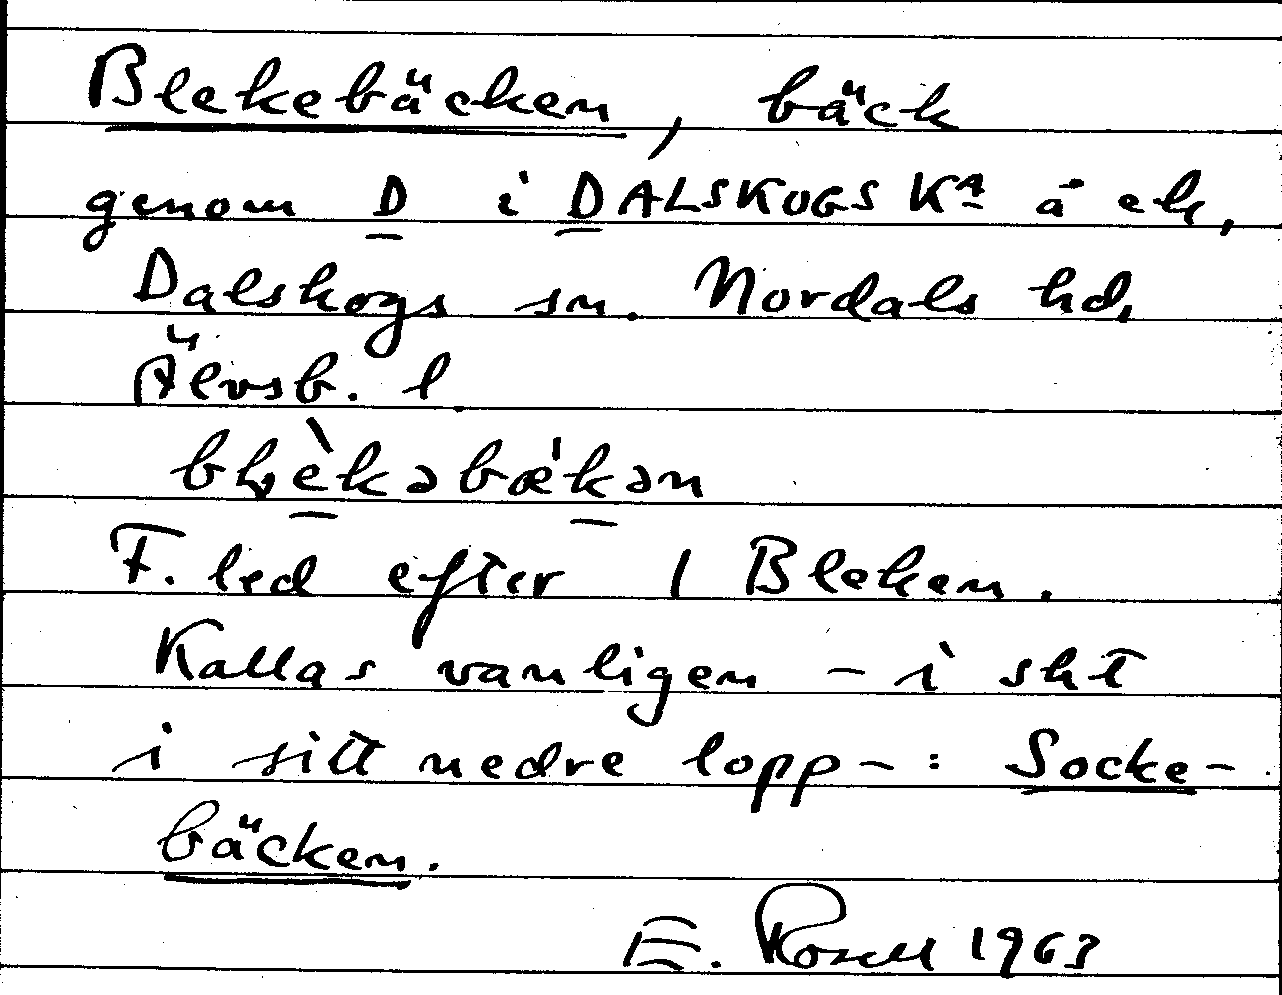 Blekebäcken, bäck
genom D i DALSKOGS Kᴬ å ek,
Dalskogs sn. Nordals hd,
Älvsb. l.
bḷèkəbækən
F. led efter 1 Bleken.
Kallas vanligen – i sht
i sitt nedre lopp – : Socke-
bäcken.
E. Rosell 1963